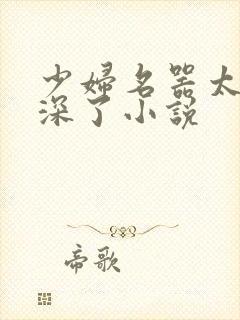 少婦名器太
深了小説
帝歌